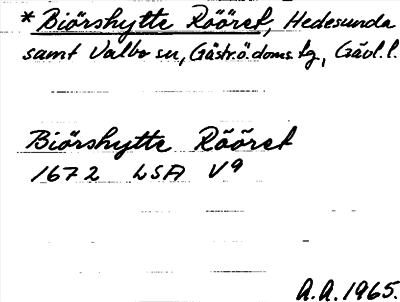 * Biörshytte Rööret, Hedesunda
samt Valbo sn, Gästr.ö.doms.tg, Gävl.l.
Biörshytte Rööret
1672 LSA V9
A.A. 1965.